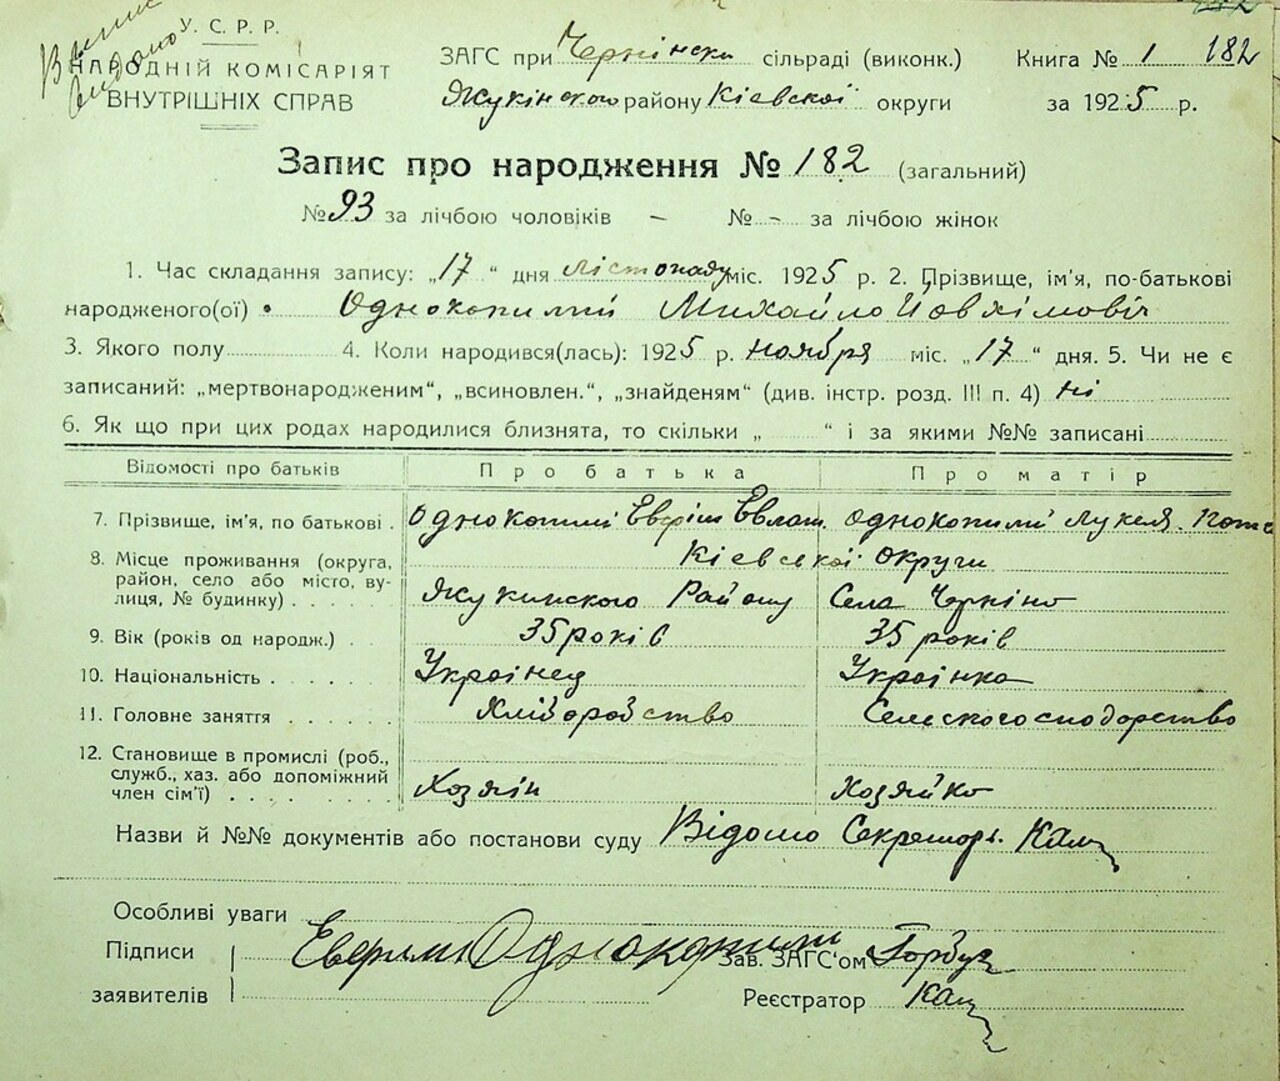 У. С. Р. Р.
НАРОДНІЙ КОМІСАРІЯТ
ВНУТРІШНІХ СПРАВ
ЗАГС при Чернінски сільраді (виконк.)
Жукінского району Кіевскої округи
Книга № 1 182
за 1925 р.
Запис про народження № 182 (загальний)
№ 93 за лічбою чоловіків — № - за лічбою жінок
1. Час складання запису: „17“ дня лістопаду міс. 1925 р. 2. Прізвище, ім'я, по-батькові
народженого(ої) Однокопилий Михайло Йовхімовіч
3. Якого полу 4. Коли народився(лась): 1925 р. ноября міс. „17“ дня. 5. Чи не є
записаний: „мертвонародженим“, „всиновлен.“, „знайденям“ (див. інстр. розд. III п. 4) ні
6. Як що при цих родах народилися близнята, то скільки „ “ і за якими №№ записані
Відомості про батьків Про батька Про матір
7. Прізвище, ім'я, по батькові . Однокопилий Евфим Евлам. Однокопилий Лукеля.
8. Місце проживання (округа, Кіевської Округи
район, село або місто, ву-
лиця, № будинку) . . . . . Жукинского Району Села Чернино
9. Вік (років од народж.) . 35 років 35 років
10. Національність . . . . . Українец Українка
11. Головне заняття . . . . . . Хліборобство Селскогосподорство
12. Становище в промислі (роб.,
служб., хаз. або допоміжний
член сім'ї) . . . . . . Хозяін Хозяйко
Назви й №№ документів або постанови суду Відомо Секреторь.
Особливі уваги
Підписи Евфим Однокопилий Зав. ЗАГС'ом Горбуз
заявителів Реєстратор